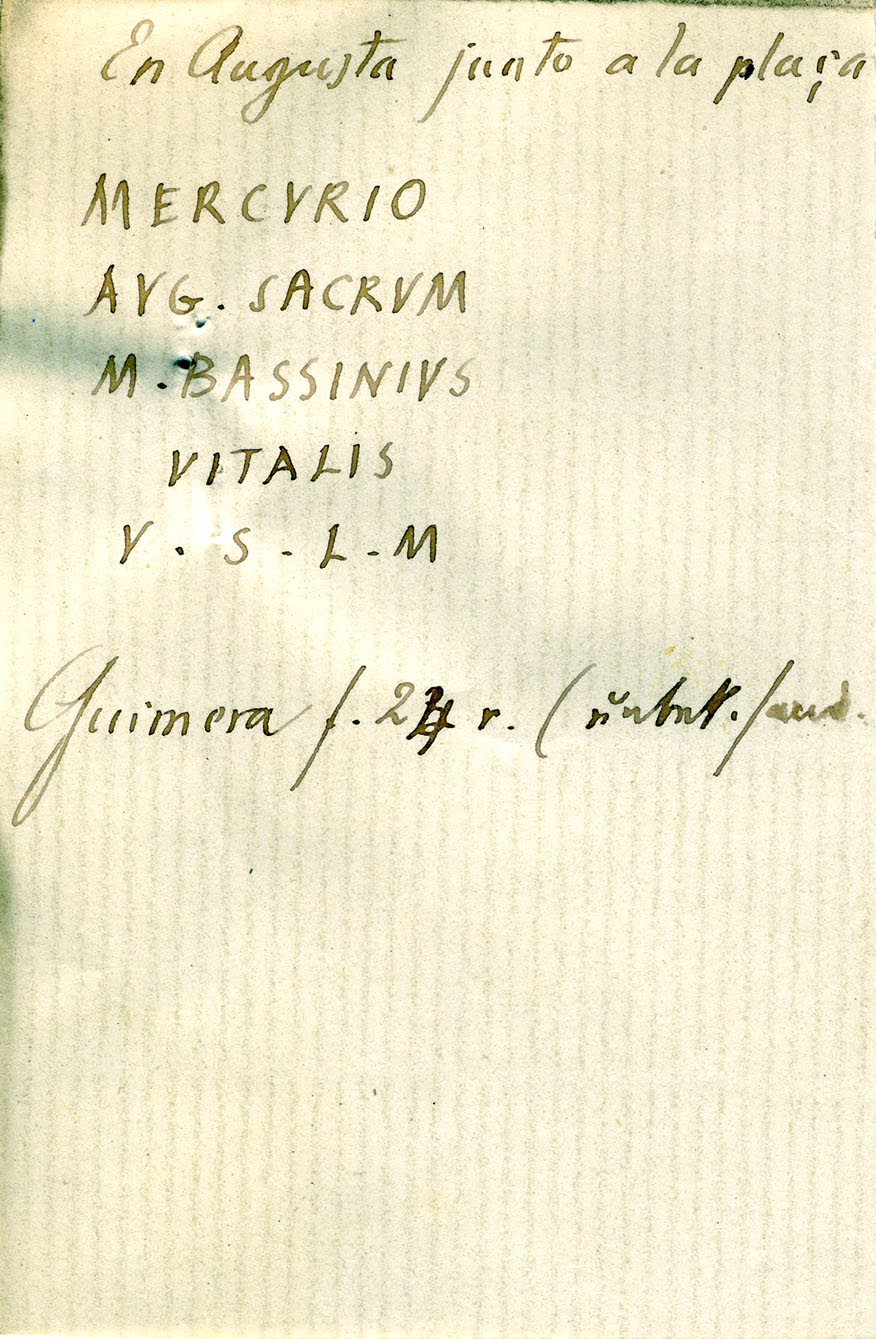 En Augusta junto a la plaça
MERCVRIO
AVG. SACRVM
M. BASSINIVS
VITALIS
V. S. L. M
Guimera f. 24 r. (